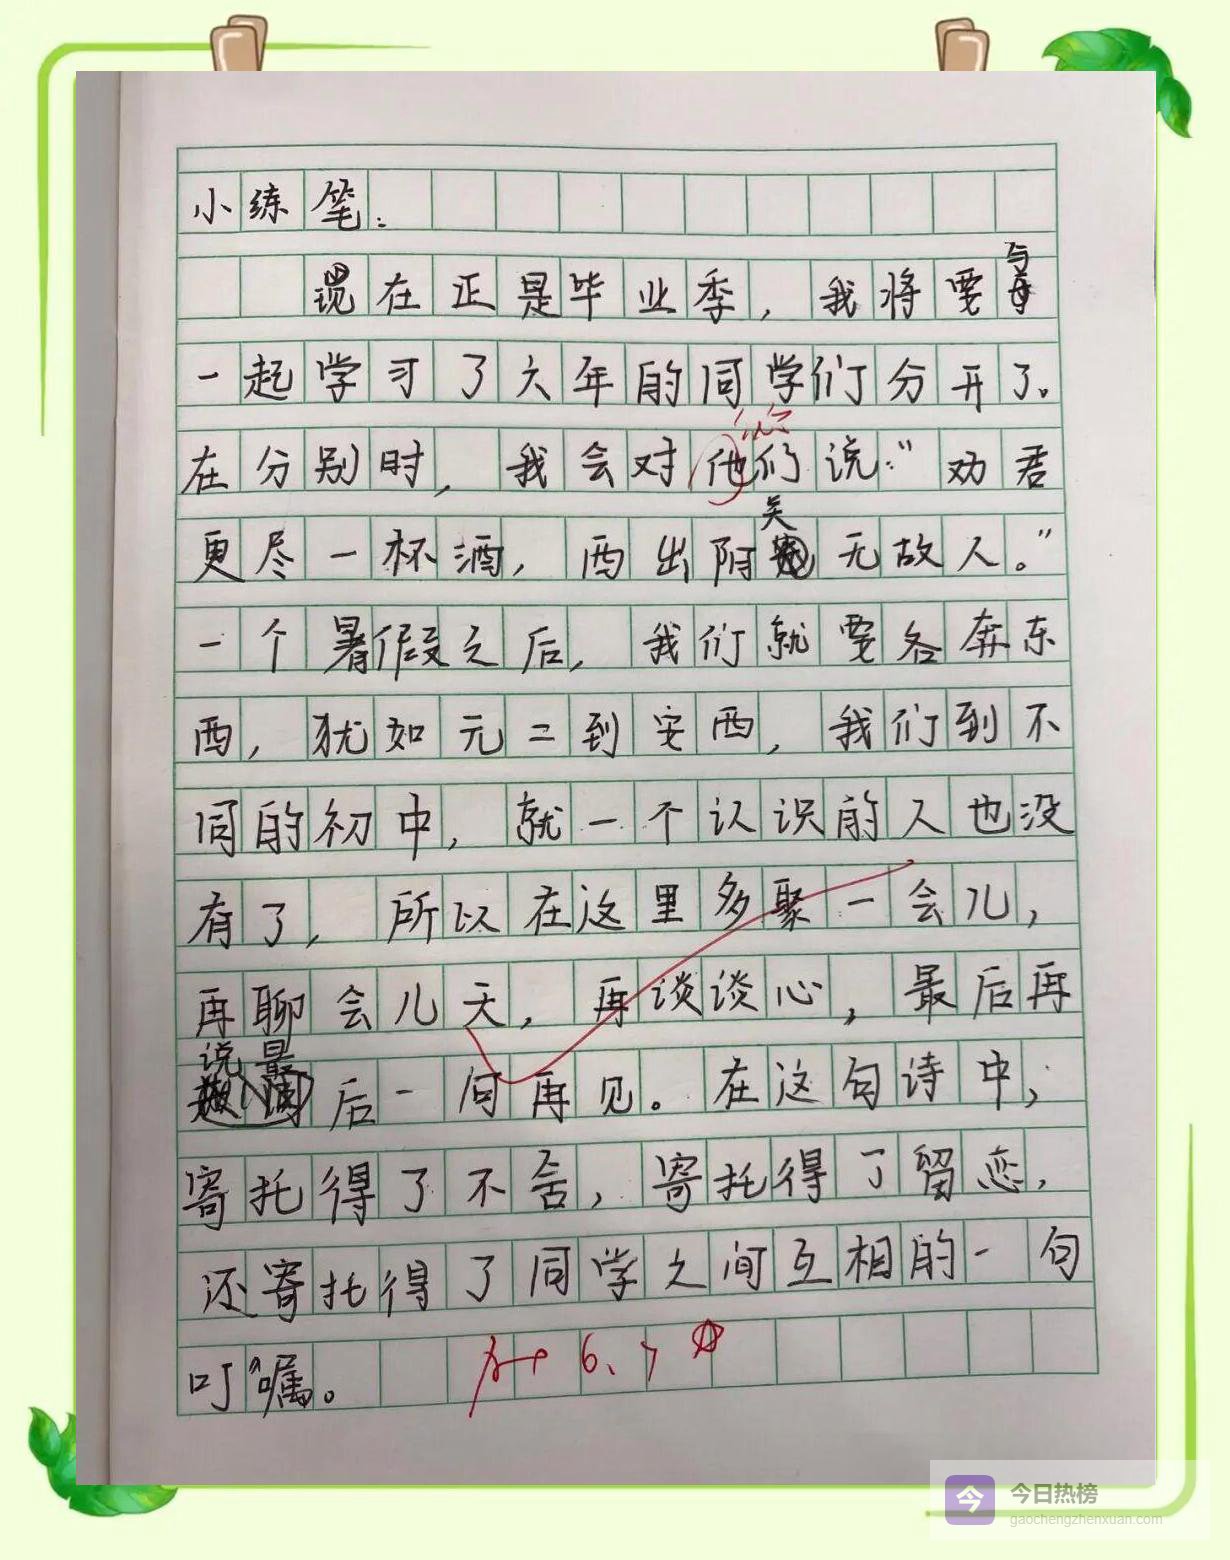 小练笔：
现在正是毕业季，我将要与
一起学习了六年的同学们分开了。
在分别时，我会对他们说："劝君
更尽一杯酒，西出阳关无故人。"
一个暑假之后，我们就要各奔东
西，犹如元二到安西，我们到不
同的初中，就一个认识的人也没
有了，所以在这里多聚一会儿，
再聊会儿天，再谈谈心，最后再
说最后一句再见。在这句诗中，
寄托得了不舍，寄托得了留恋，
还寄托得了同学之间互相的一句
叮嘱。
A+ 6.7
今日热榜
gaochengzhenxuan.com